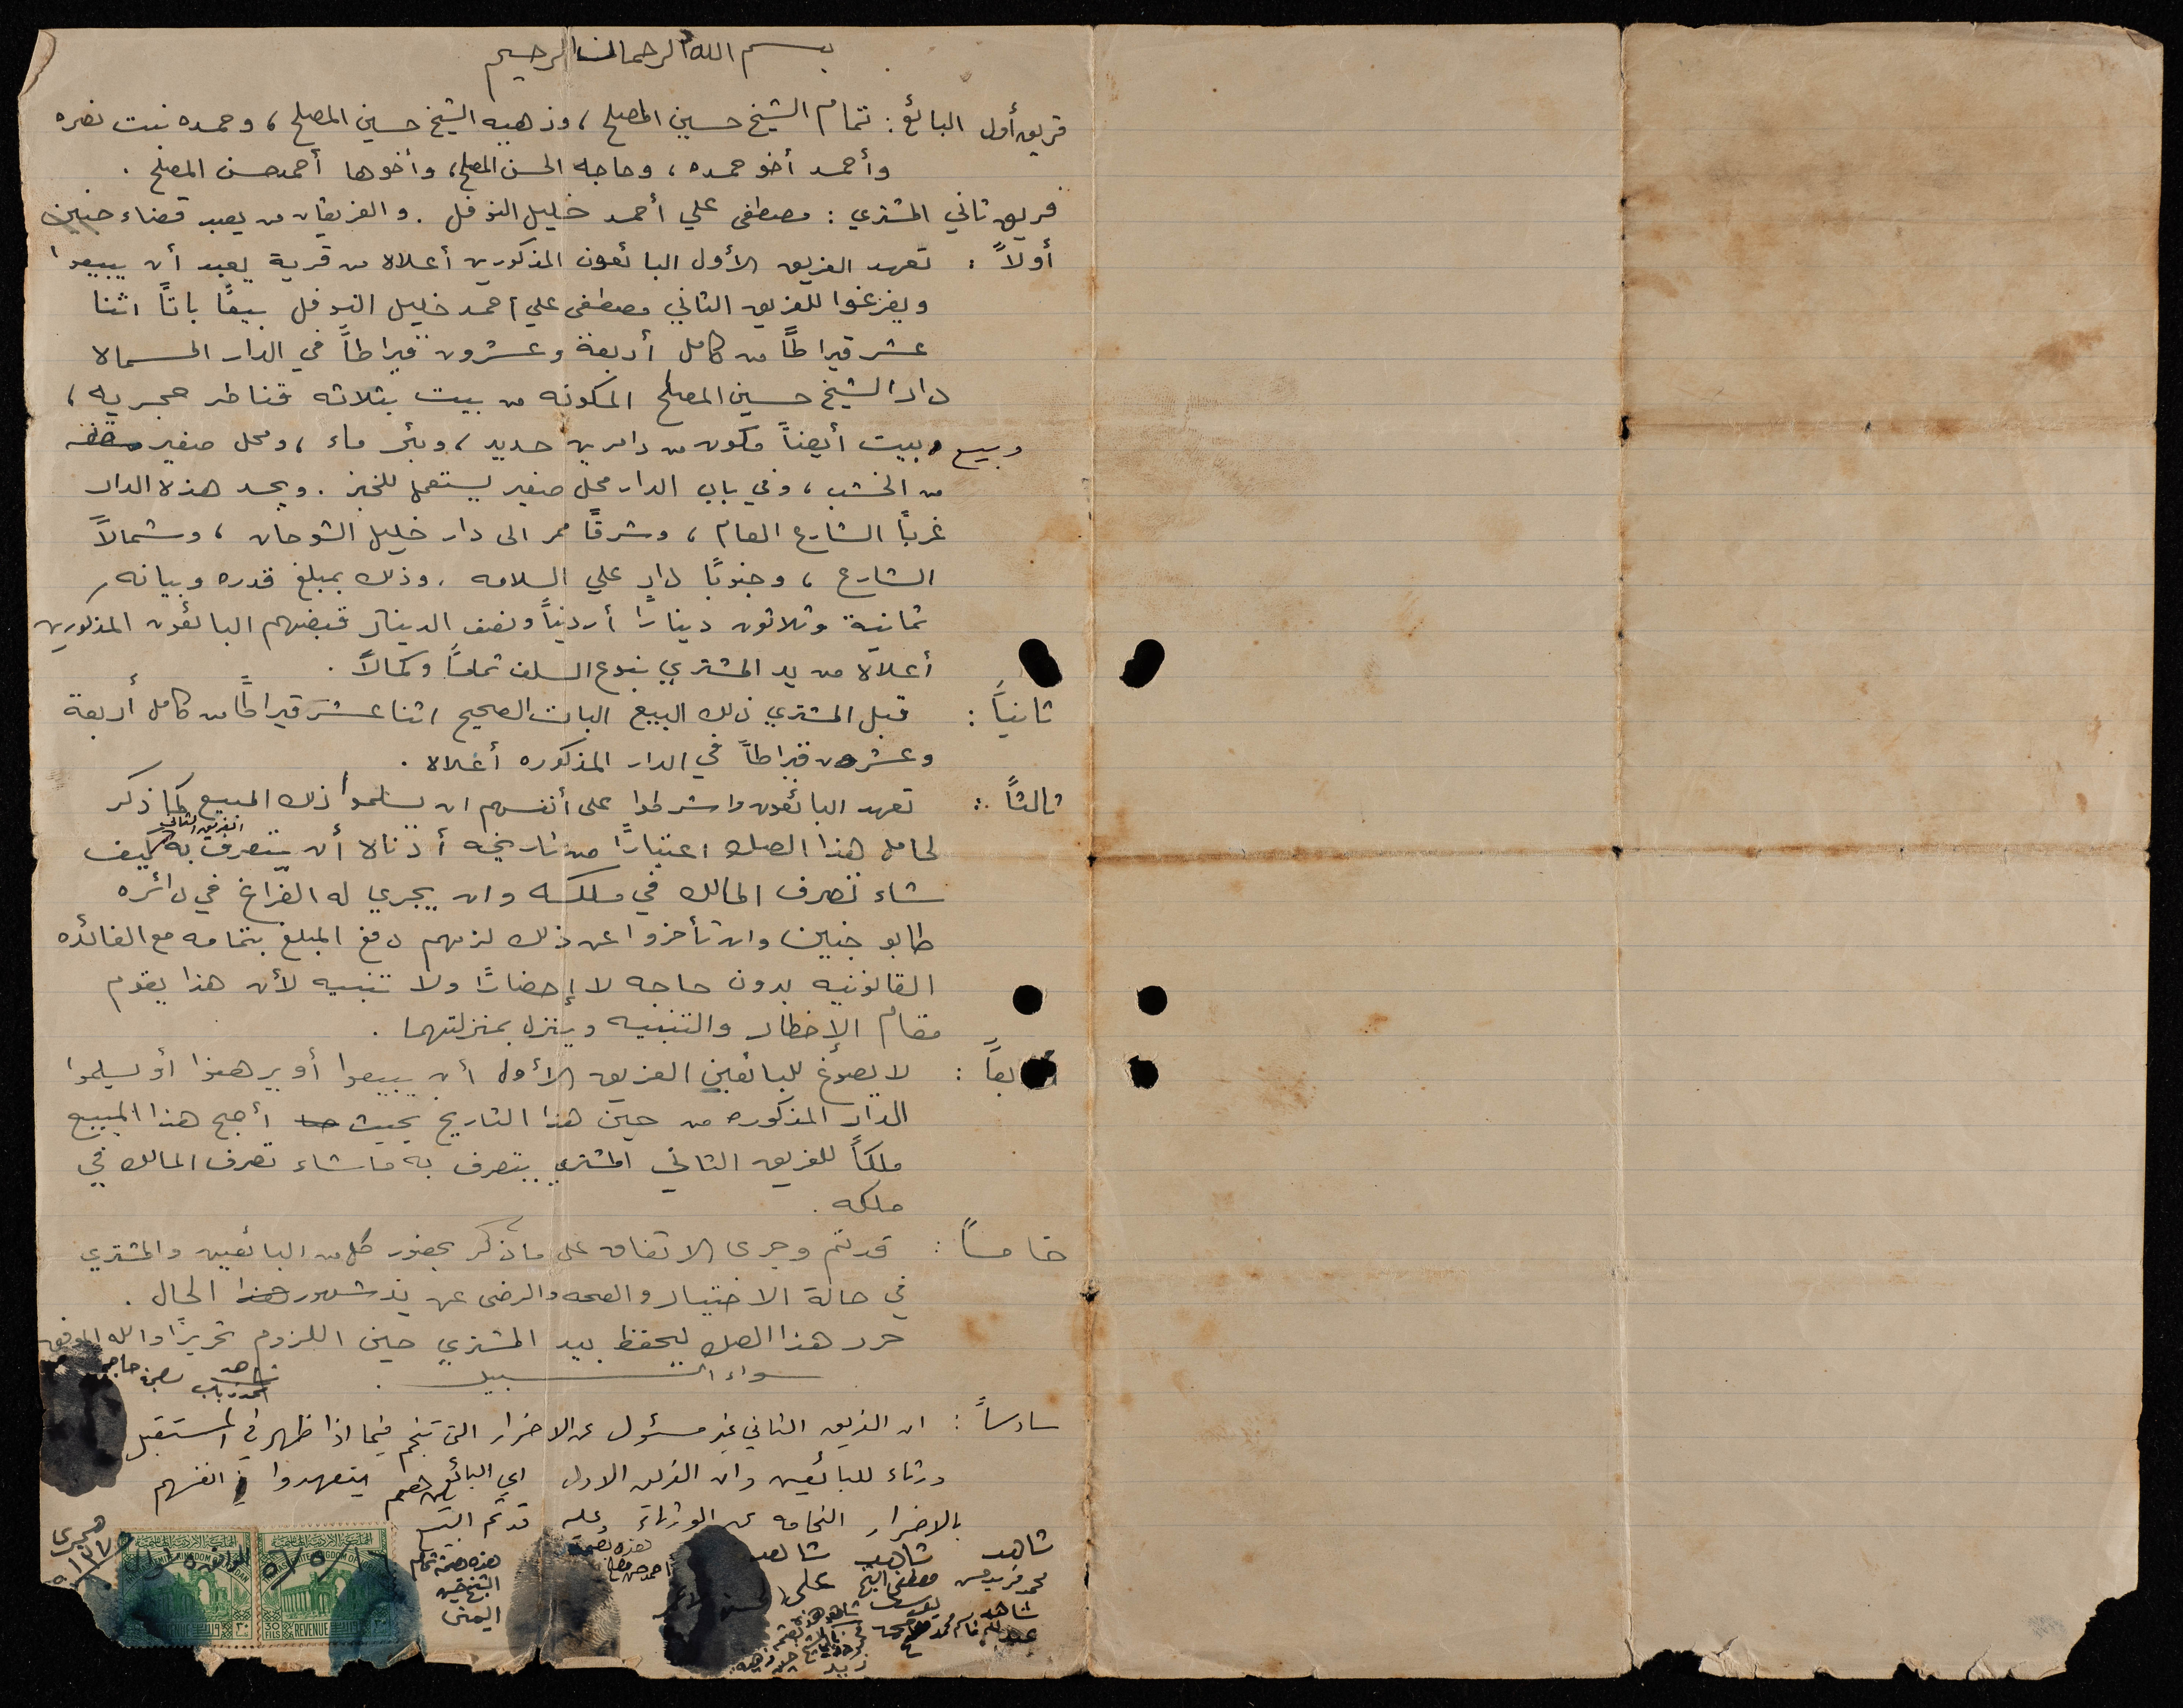 بسم الله الرحمان الرحيم
فريق أول البائع : تمام الشيخ حسين المصلح ، وذهبيه الشيخ حسين المصلح ، وحمده بنت نصره
وأحمد أخو حمده ، وحاجه الحسن المصلح ، وأخوها أحمد حسن المصلح .
فريق ثاني المشتري : مصطفى علي أحمد خليل النوفل . والفريقان من يعبد قضاء جنين
أولاً : تعهد الفريق الأول البائعون المذكورين أعلاه من قرية يعبد أن يبيعوا
ويفرغوا للفريق الثاني مصطفى علي احمد خليل النوفل بيعًا باتًا اثنا
عشر قيراطًا من كامل أربعة وعشرون قيراطاً في الدار المسماه
دار الشيخ حسين المصلح المكونه من بيت بثلاثه قناطر حجريه ،
وبيع وبيت أيضاً مكون من دامرين حديد ، وبئر ماء ، ومحل صغير
من الخشب ، وفي باب الدار محل صغير يستعمل للخبز . ويحد هذه الدار
غربًا الشارع العام ، وشرقًا ممر الى دار خليل الشوحان ، وشمالاً
الشارع ، وجنوبًا دار علي السلامه . وذلك بمبلغ قدره وبيانه
ثمانية وثلاثون دينارًا أردنياً ونصف الدينار قبضهم البائعون المذكورين
أعلاه من يد المشتري بنوع السلف تمامًا وكمالاً .
ثانياً : قبل المشتري ذلك البيع البات الصحيح اثنا عشر قيراطًا من كامل أربعة
وعشرون قيراطاً في الدار المذكوره أعلاه .
ثالثاً : تعهد البائعون واشرطوا على أنفسهم ان يسلموا ذلك المبيع كما ذكر
الفريق الثاني
لحامل هذا الصك اعتبارًا من تاريخه أدناه أن يتصرف به كيف
شاء تصرف المالك في ملكه وان يجري له الفراغ في دائره
طابو جنين وان تأخروا عن ذلك لزمهم دفع المبلغ بتمامه مع الفائده
القانونيه بدون حاجه لا إحضارًا ولا تنبيه لأن هذا يقوم
مقام الإخطار والتنبيه وينزل بمنزلتهما .
بعاً : لا يصوغ للبائعين الفريق الأول أن يبيعوا أو يرهنوا أو يسلموا
الدار المذكوره من حين هذا التاريخ بحيث أصبح هذا المبيع
ملكاً للفريق الثاني المشتري يتصرف به ما شاء تصرف المالك في
ملكه .
خامساً : قد تم وجرى الاتفاق على ما ذكر بحضور كل من البائعين والمشتري
في حالة الاختيار والصحه والرضى عن يد شهود الحال .
حرر هذا الصك ليحفظ بيد المشتري حين اللزوم تحريرًا والله الموفق
سواء السبيل .
شاهد
بصمة حاجه
سادساً : ان الفريق الثاني غير مسئول عن الاضرار التي تنجم فيما اذا ظهر في المستقبل
ورثاء للبائعين وان الفريق الاول اي البائعين يتعهدوا انفسهم
بالاضرار من الورثاء وعليه قد تم البيع
شاهد شاهد شاهد
هذه بصمة
أحمد حسن مصلح
هذه بصمة تمام
الشيخ حسين
اليمنى
محمد فريد حسن
مصطفى الشيخ
يوسف
علي
شاهد
هجري
١٣٧٥
THE HASHEMITE KINGDOM OF JORDAN
30
FILS
REVENUE
٣٠